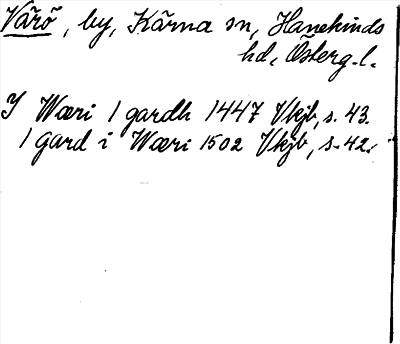 Värö, by, Kärna sn, Hanekinds
hd, Österg.l.
I Wæri 1 gardh 1447 Vkjb, s. 43.
1 gard i Wæri 1502 Vkjb, s. 42.